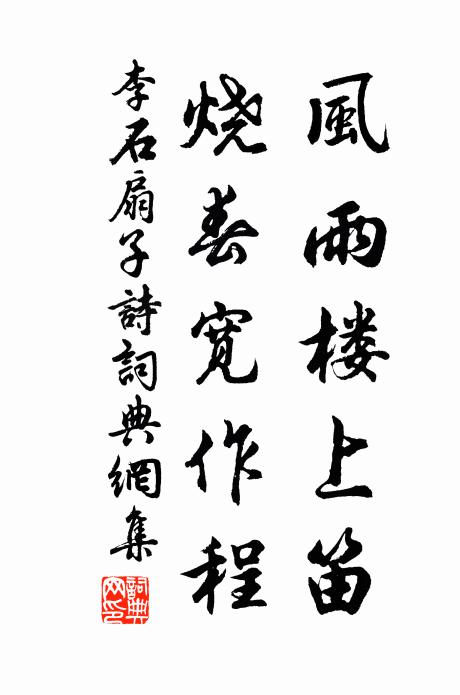 風雨楼上笛
烧春寬作程
李石扇子詩詞典網集
詞典
网印